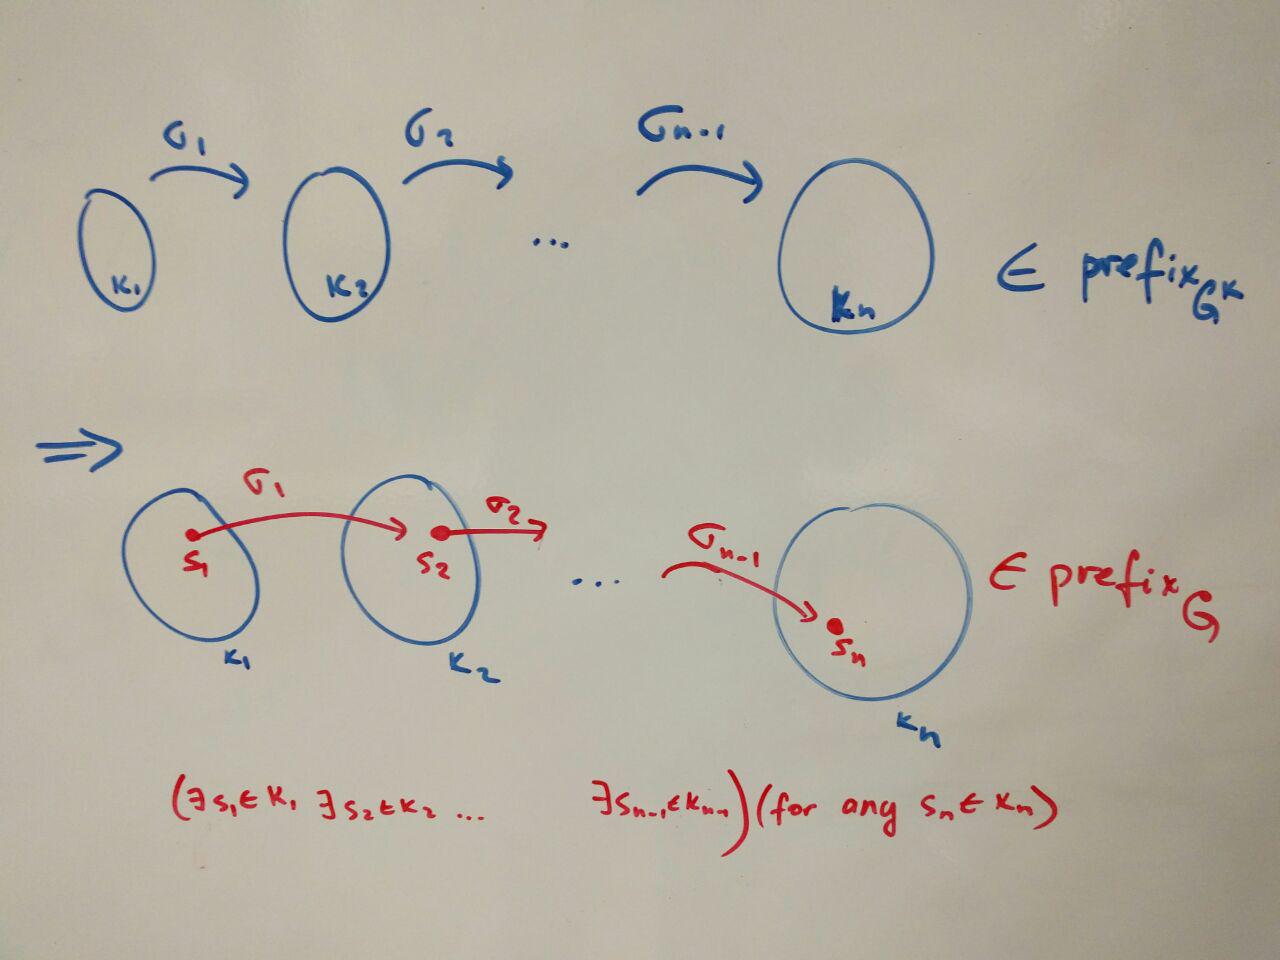 σ₁ σ₂ σₙ₋₁
K₁ K₂ ... Kₙ ∈ prefix_Gᴷ
⇒
σ₁ σ₂ σₙ₋₁
s₁ s₂ ... sₙ ∈ prefix_G
K₁ K₂ Kₙ
(∃s₁∈K₁ ∃s₂∈K₂ ... ∃sₙ₋₁∈Kₙ₋₁)(for any sₙ∈Kₙ)